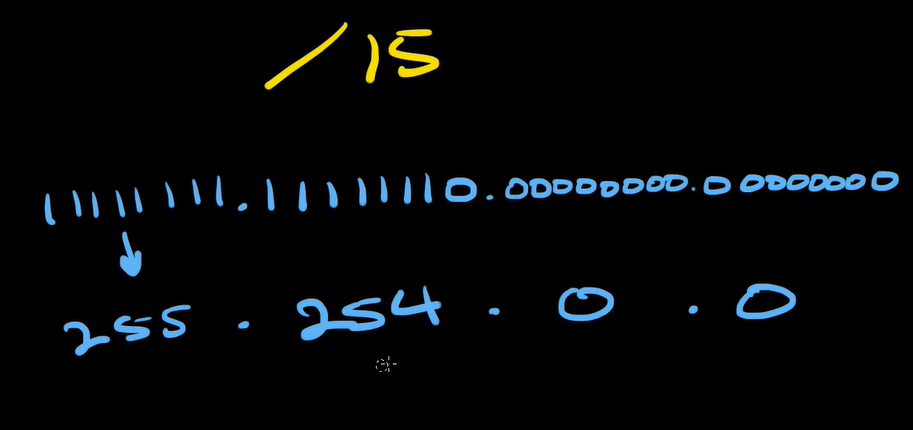 /15
11111111.11111110.00000000.00000000
255.254.0.0